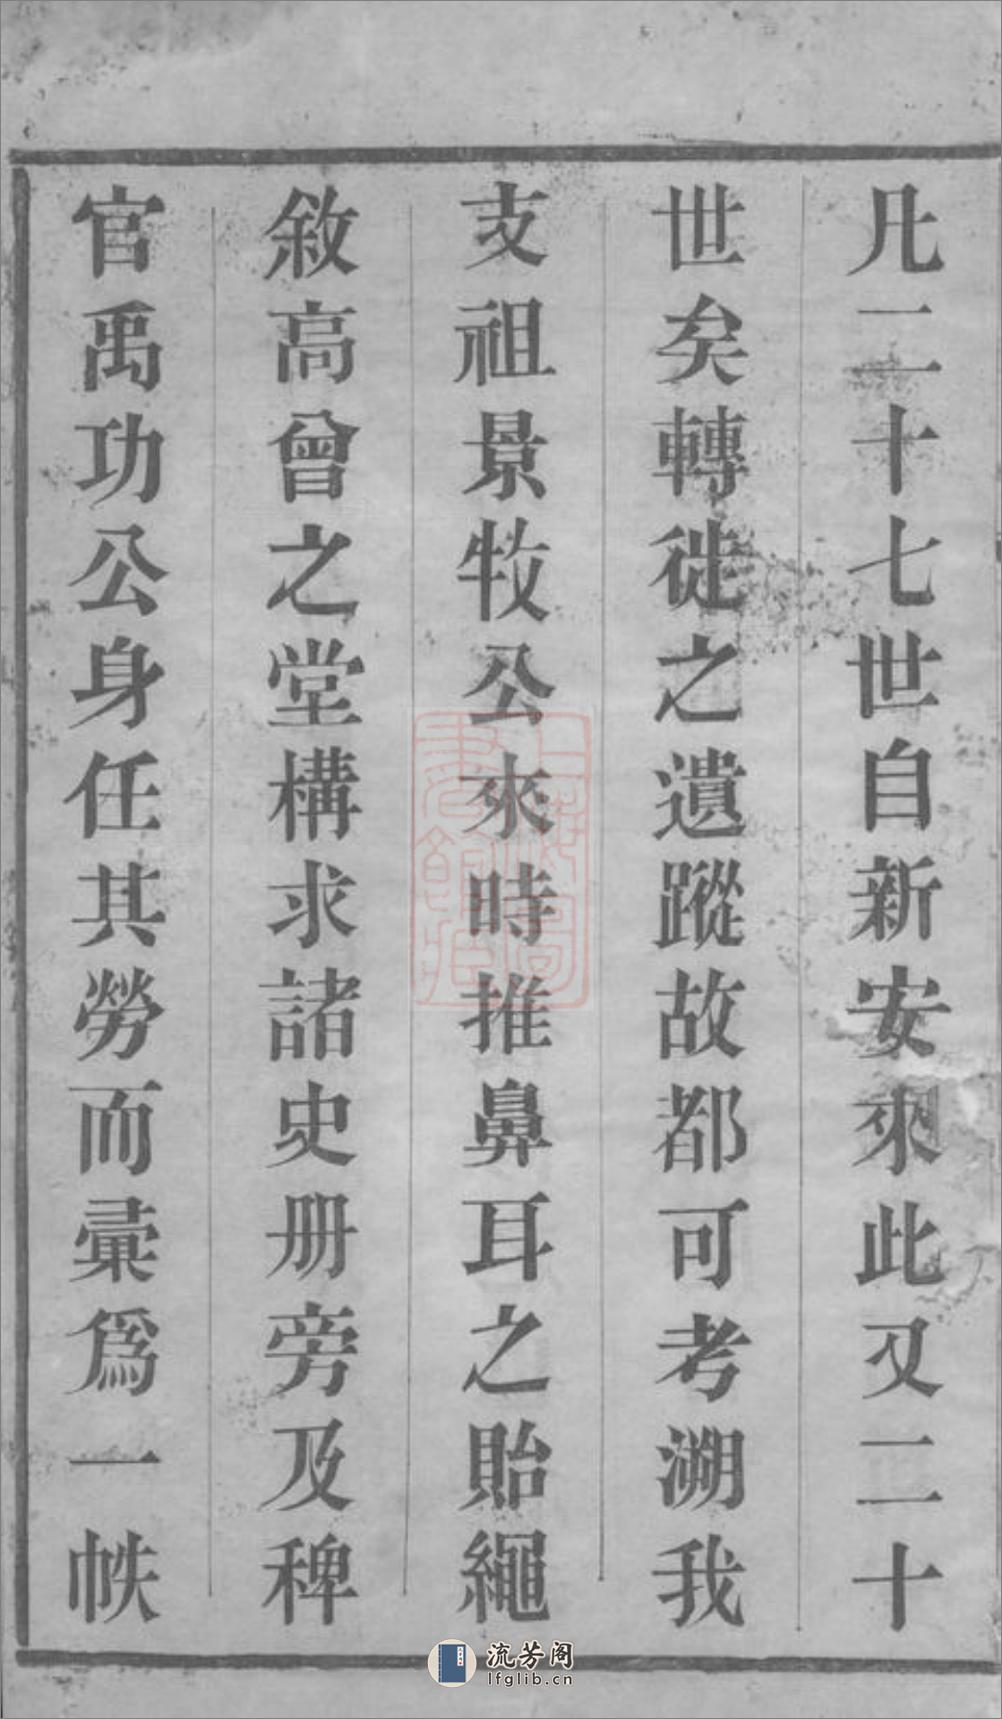 凡二十七世自新安來此又二十
世矣轉徙之遺蹤故都可考溯我
支祖景牧公來時推鼻耳之貽繩
敘高曾之堂構求諸史册旁及稗
官禹功公身任其勞而彚爲一帙
上海圖書館藏
流芳阁
lfglib.cn